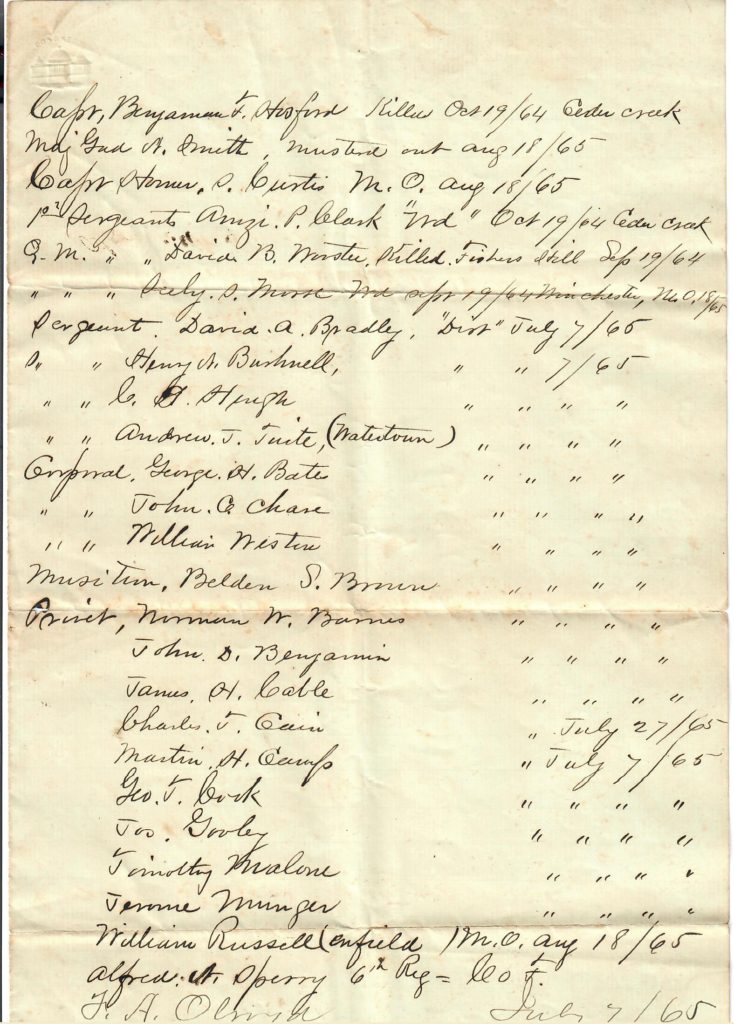 Capt, Benjaman F. Hosford Killed Oct 19/64 Ceder creek
Maj Gad N. Smith, musterd out aug 18/65
Capt Homer. S. Curtis M. O. aug 18/65
1st Sergeants Amzi. P. Clark "Wd" Oct 19/64 Ceder creek
Q. M. " " David B. Wooster, Killed. Fishers Hill Sep 19/64
" " " Seely. S. Morse Wd sept 19/64 Winchester, M. O. 18/65
Sergeant. David. A. Bradley, "Dist" July 7/65
S" " Henry A. Bushnell, " " 7/65
" " C. " " " "
" " Andrew. J. Tuite, (Watertown) " " " "
Corporal, George. H. Bates " " " "
" " John. C. Chase " " " "
" " William Weston " " " "
Musition, Belden S. Brown " " " "
Privet, Norman W. Barnes " " " "
John. D. Benjamin " " " "
James. H. Cable " " " "
Charles. F. Cain " July 27/65
Martin. H. Camp " July 7/65
Geo. F. Cook " " " "
Jos. Gooley " " " "
Timothy Malone " " " "
Jerome Munger " " " "
William Russell (enfield) M. O. aug 18/65
alfred. N. Sperry 6th Reg = Co F.
F. A. July 7/65